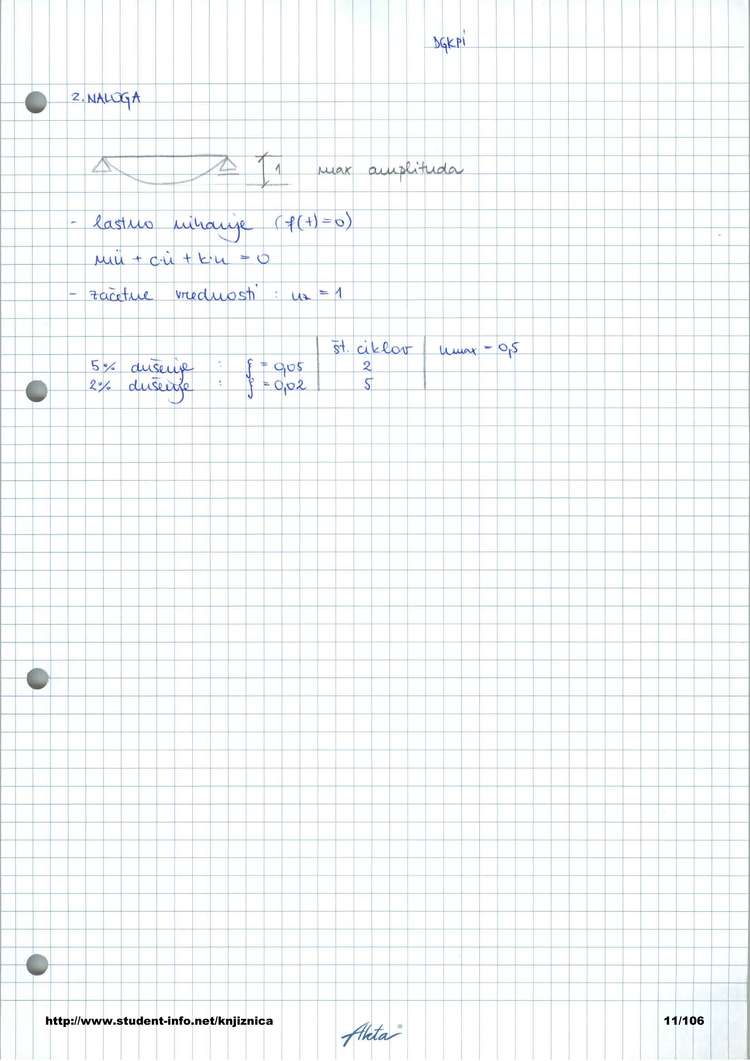 DGKPI
2. NALOGA
1 max amplituda
- lastno nihanje (f(t)=0)
mü + c·u̇ + k·u = 0
- začetne vrednosti : u₂ = 1
št. ciklov umax = 0,5
5% dušenje : ξ = 0,05 2
2% dušenje : ξ = 0,02 5
http://www.student-info.net/knjiznica
Akta
11/106